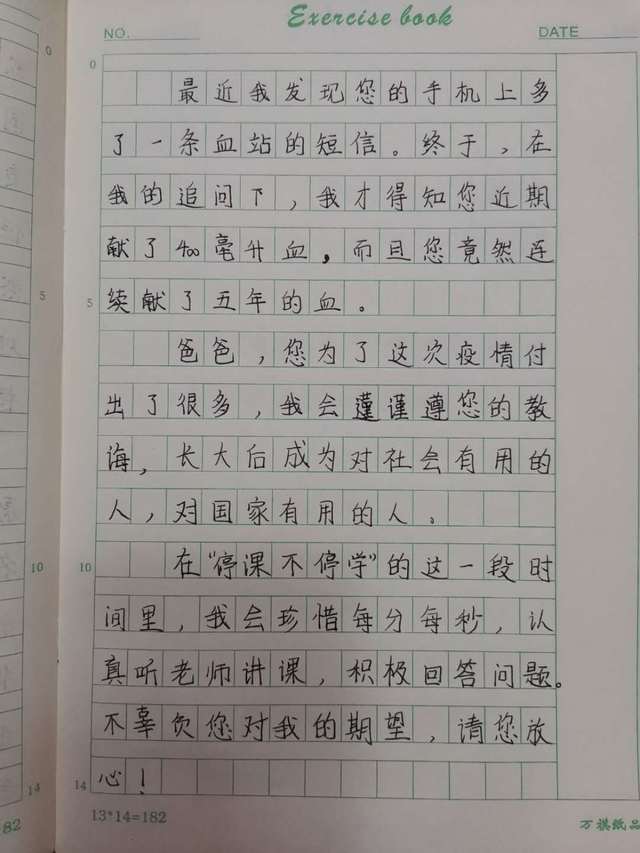 Exercise book
NO.
DATE
0
0
最近我发现您的手机上多
了一条血站的短信。终于，在
我的追问下，我才得知您近期
献了400毫升血，而且您竟然连
5
5
续献了五年的血。
爸爸，您为了这次疫情付
出了很多，我会谨谨遵您的教
诲，长大后成为对社会有用的
人，对国家有用的人。
10
10
在“停课不停学”的这一段时
间里，我会珍惜每分每秒，认
真听老师讲课，积极回答问题。
不辜负您对我的期望，请您放
14
14
心！
82
13*14=182
万祺纸品